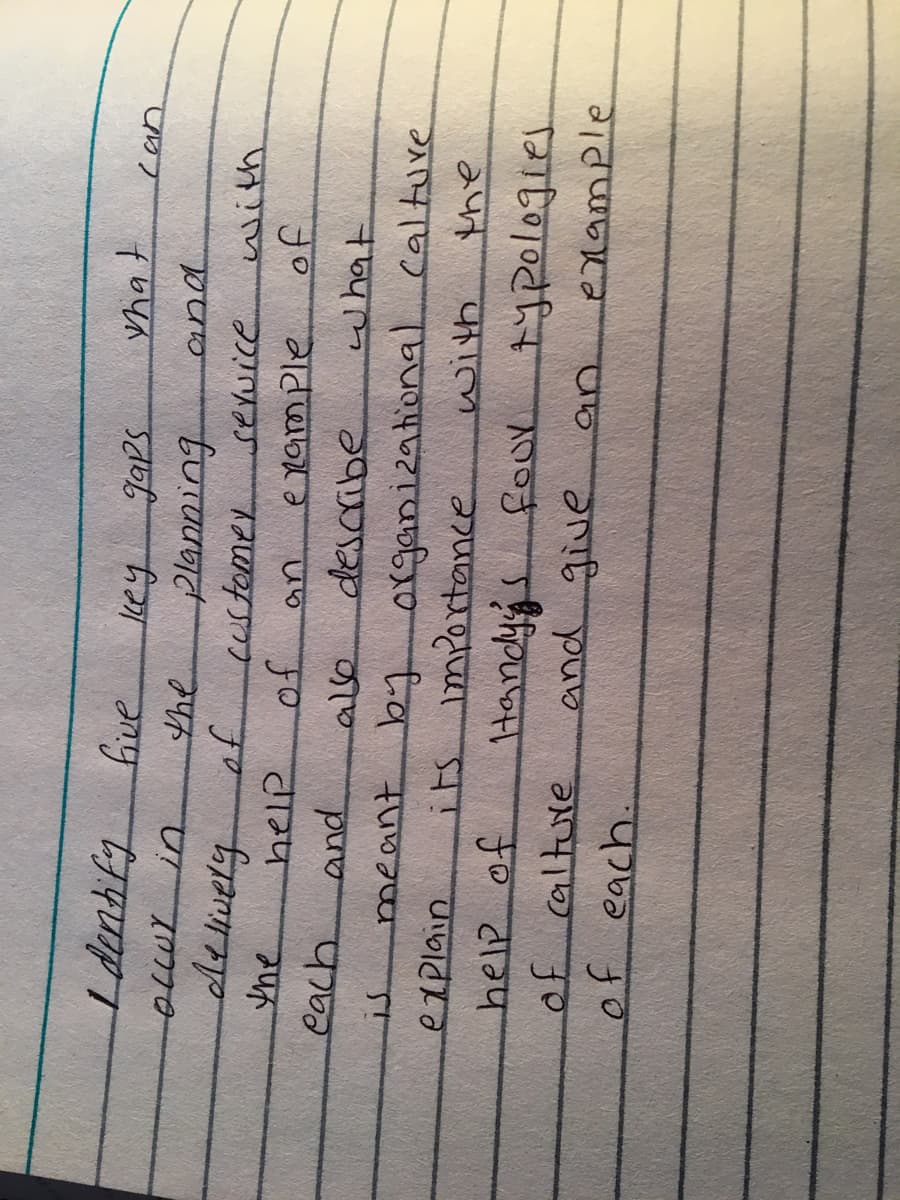 Identify five key gaps that can
occur in the planning and
delivery of customer service with
the help of an example of
each and also describe what
is meant by organizational calture
explain its importance with the
help of Handy's four typologies
of calture and give an example
of each.